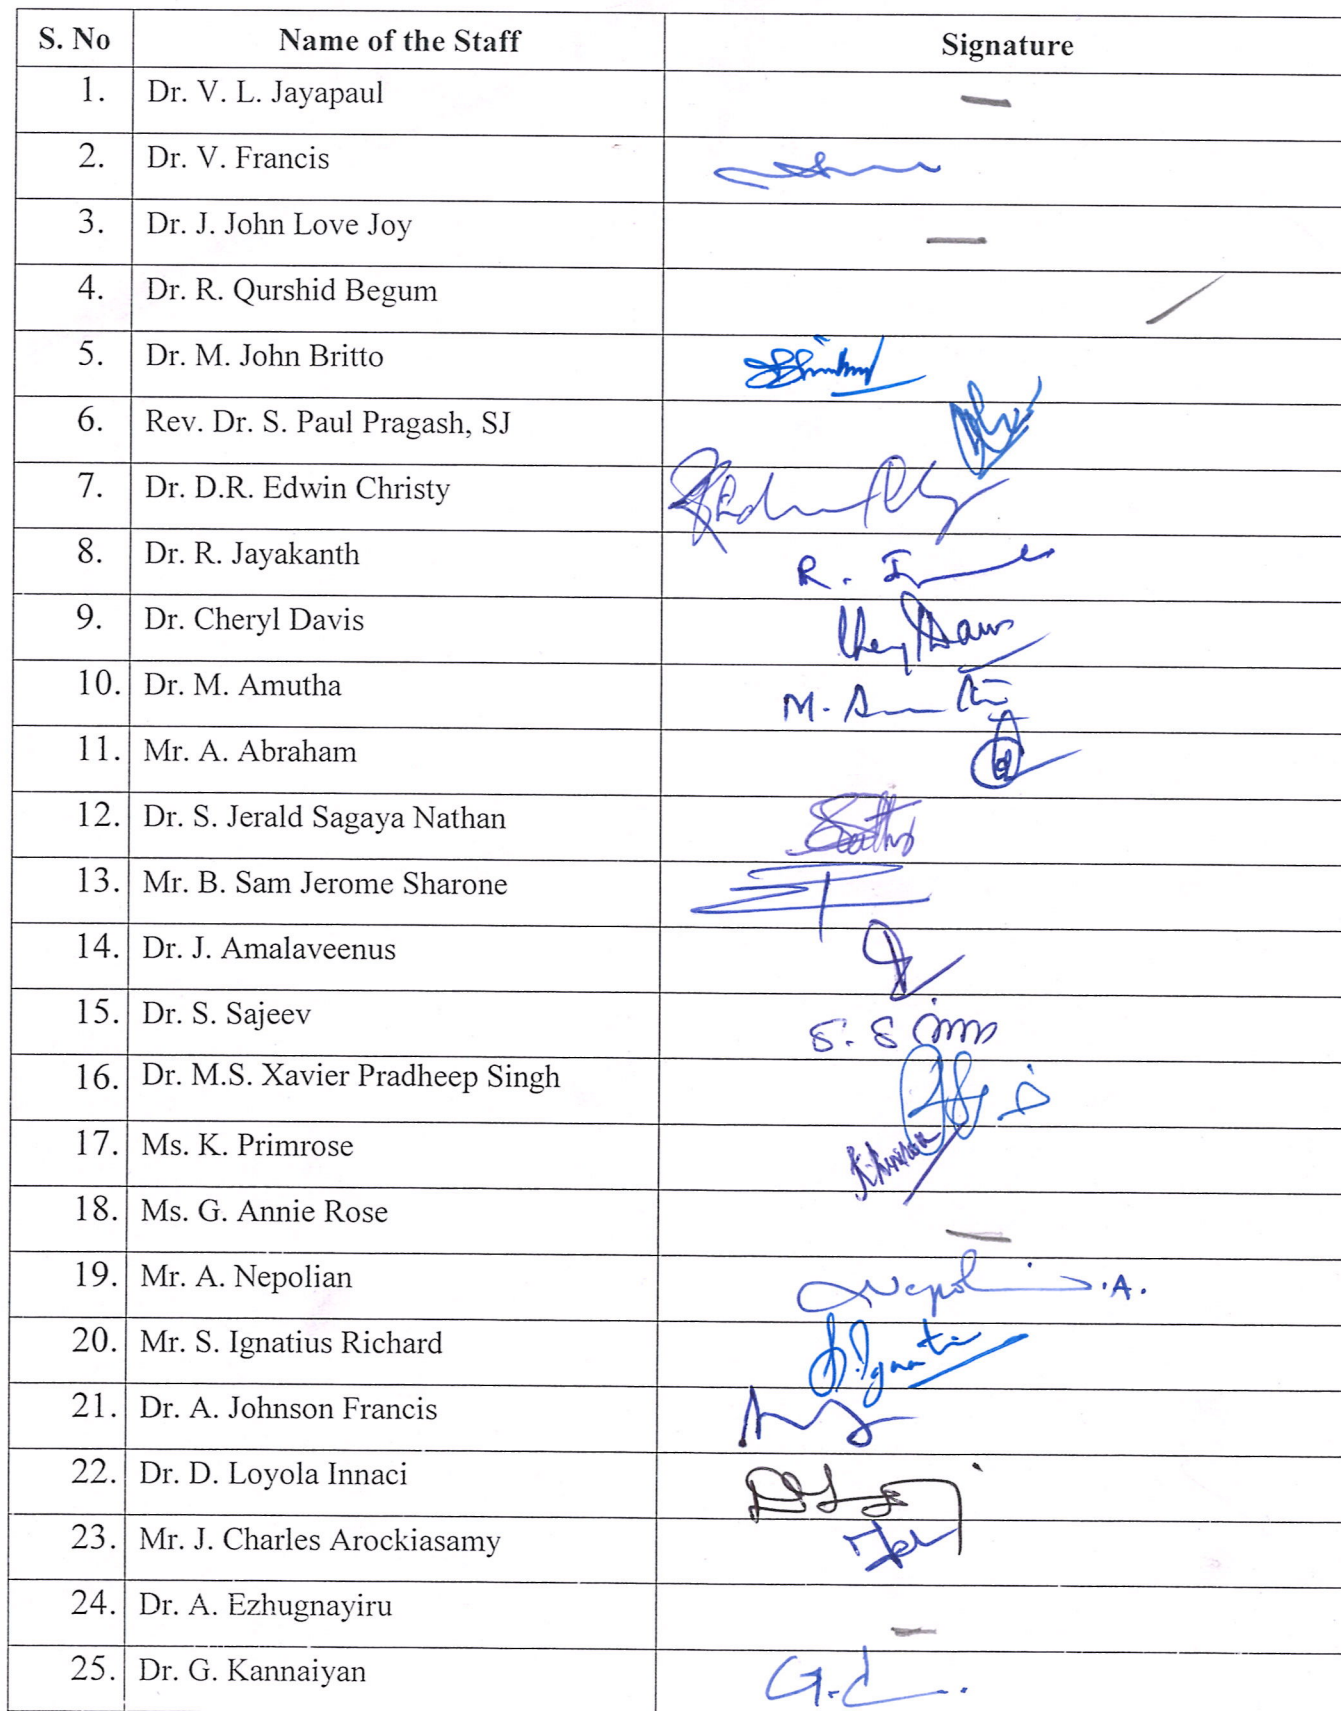 S. No Name of the Staff Signature
1. Dr. V. L. Jayapaul —
2. Dr. V. Francis
3. Dr. J. John Love Joy —
4. Dr. R. Qurshid Begum /
5. Dr. M. John Britto
6. Rev. Dr. S. Paul Pragash, SJ
7. Dr. D.R. Edwin Christy
8. Dr. R. Jayakanth R.
9. Dr. Cheryl Davis
10. Dr. M. Amutha M.
11. Mr. A. Abraham
12. Dr. S. Jerald Sagaya Nathan
13. Mr. B. Sam Jerome Sharone
14. Dr. J. Amalaveenus
15. Dr. S. Sajeev S. S
16. Dr. M.S. Xavier Pradheep Singh
17. Ms. K. Primrose
18. Ms. G. Annie Rose —
19. Mr. A. Nepolian .A.
20. Mr. S. Ignatius Richard
21. Dr. A. Johnson Francis
22. Dr. D. Loyola Innaci
23. Mr. J. Charles Arockiasamy
24. Dr. A. Ezhugnayiru —
25. Dr. G. Kannaiyan G.